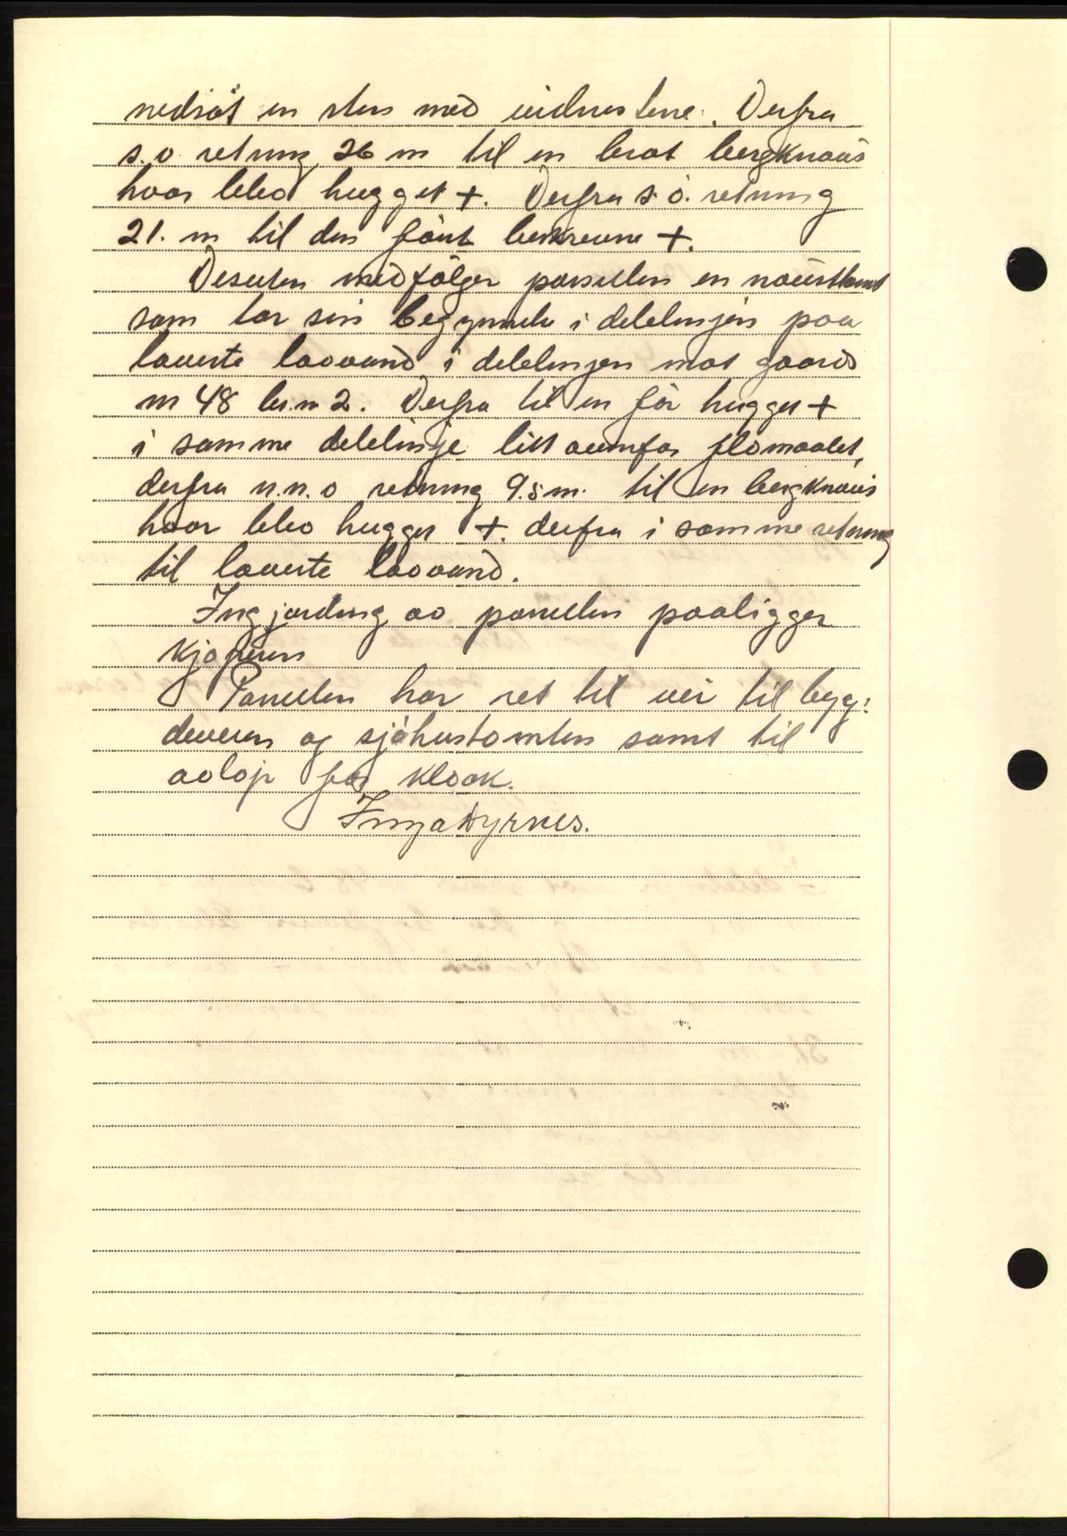 nedsat en sten med vidnestene. Derfra
s.o retning 26 m til en brat bergknaus
hvor blev hugget +. Derfra s.ö. retning
21. m til den först beskrevne +.
Desuten medfölger parsellen en nausttomt
som tar sin begynnelse i delelinjen paa
laveste lavvand i delelinjen mot gaards
nr 48 br.nr 2. Derfra til en för hugget +
i samme delelinje litt ovenfor flomaalet,
derfra n.n.o retning 9.5 m. til en bergknaus
hvor blev hugget +. derfra i samme retning
til laveste lavvand.
Inngjerding av parsellen paaligger
kjöperen
Parsellen har ret til vei til byg:
deveien og sjöhustomten samt til
avlöp for kloak.
Inga Dyrnes.